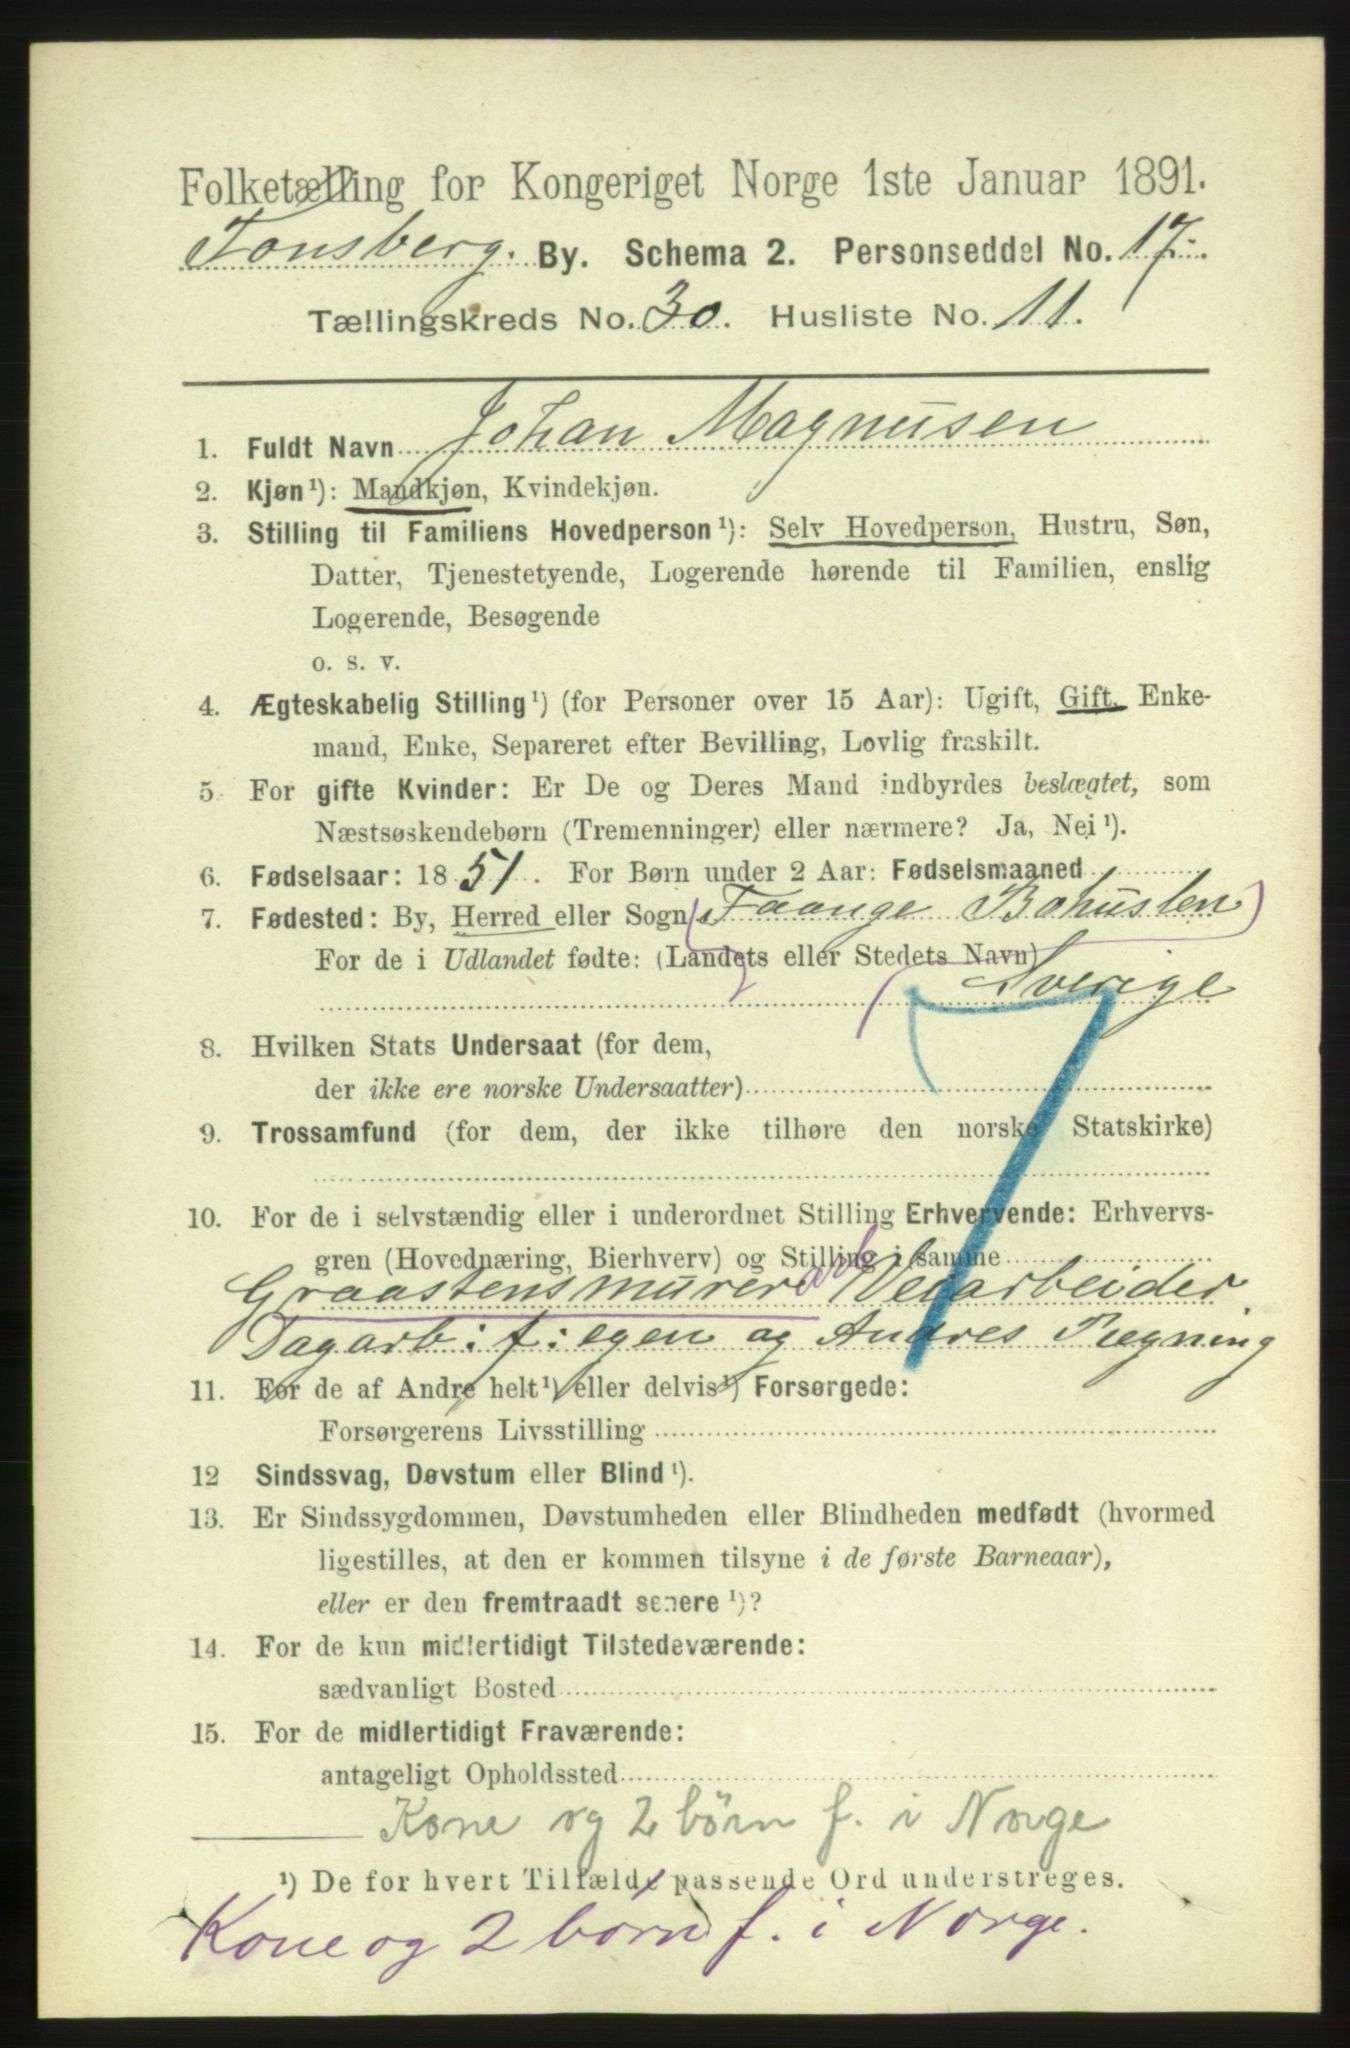 Folketælling for Kongeriget Norge 1ste Januar 1891.
Tønsberg. By. Schema 2. Personseddel No. 17.
Tællingskreds No. 30. Husliste No. 11.
1. Fuldt Navn Johan Magnusen
2. Kjøn¹): Mandkjøn, Kvindekjøn.
3. Stilling til Familiens Hovedperson¹): Selv Hovedperson, Hustru, Søn,
Datter, Tjenestetyende, Logerende hørende til Familien, enslig
Logerende, Besøgende
o. s. v.
4. Ægteskabelig Stilling¹) (for Personer over 15 Aar): Ugift, Gift, Enke-
mand, Enke, Separeret efter Bevilling, Lovlig fraskilt.
5. For gifte Kvinder: Er De og Deres Mand indbyrdes beslægtet, som
Næstsøskendebørn (Tremenninger) eller nærmere? Ja, Nei¹).
6. Fødselsaar: 1851. For Børn under 2 Aar: Fødselsmaaned
7. Fødested: By, Herred eller Sogn Bohuslen
For de i Udlandet fødte: (Landets eller Stedets Navn)
Sverige
8. Hvilken Stats Undersaat (for dem,
der ikke ere norske Undersaatter)
9. Trossamfund (for dem, der ikke tilhøre den norske Statskirke)
10. For de i selvstændig eller i underordnet Stilling Erhvervende: Erhvervs-
gren (Hovednæring, Bierhverv) og Stilling i samme
Graastensmurer arb Veiarbeider
Dagarb: f: egen og Andres Regning
11. For de af Andre helt¹) eller delvis¹) Forsørgede:
Forsørgerens Livsstilling
12 Sindssvag, Døvstum eller Blind¹).
13. Er Sindssygdommen, Døvstumheden eller Blindheden medfødt (hvormed
ligestilles, at den er kommen tilsyne i de første Barneaar),
eller er den fremtraadt senere¹)?
14. For de kun midlertidigt Tilstedeværende:
sædvanligt Bosted
15. For de midlertidigt Fraværende:
antageligt Opholdssted
Kone og 2 børn f. i Norge
¹) De for hvert Tilfælde passende Ord understreges.
Kone og 2 børn f. i Norge.